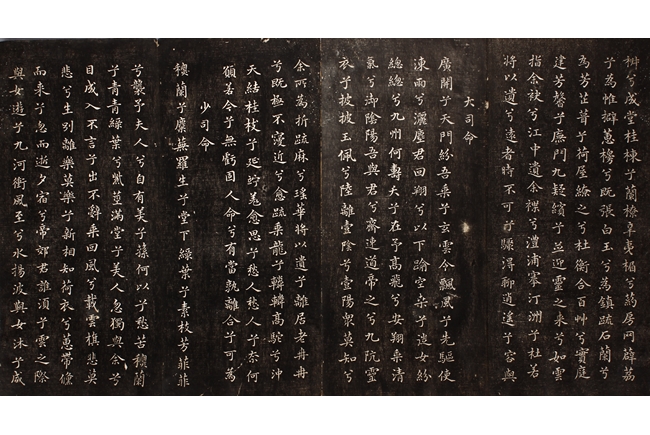 椒兮成堂桂棟兮蘭橑辛夷楣兮葯房罔薜荔
兮為帷擗蕙櫋兮既張白玉兮為鎮疏石蘭兮
為芳芷葺兮荷屋繚之兮杜衡合百艸兮實庭
建芳馨兮廡門九疑繽兮並迎靈之來兮如雲
捐余袂兮江中遺余褋兮澧浦搴汀洲兮杜若
將以遺兮遠者時不可兮驟得聊逍遙兮容與
大司命
廣開兮天門紛吾乘兮玄雲令飄風兮先驅使
涷雨兮灑塵君回翔兮以下踰空桒兮從女紛
總總兮九州何壽夭兮在予高飛兮安翔乘清
氣兮御陰陽吾與君兮齋速道帝之兮九阬靈
衣兮披披玉佩兮陸離壹陰兮壹陽衆莫知兮
余所為折疏麻兮瑤華將以遺兮離居老冉冉
兮既極不寖近兮愈疏乘龍兮轔轔高駝兮沖
天結桂枝兮延竚羌愈思兮愁人愁人兮奈何
願若今兮無虧固人命兮有當孰離合兮可為
少司命
穠蘭兮麋蕪羅生兮堂下綠葉兮素枝芳菲菲
兮襲予夫人兮自有美子蓀何以兮愁苦穠蘭
兮青青綠葉兮紫莖滿堂兮美人忽獨與余兮
目成入不言兮出不辭乘回風兮載雲旗悲莫
悲兮生別離樂莫樂兮新相知荷衣兮蕙帶儵
而來兮忽而逝夕宿兮帝郊君誰須兮雲之際
與女遊兮九河衝風至兮水揚波與女沐兮咸